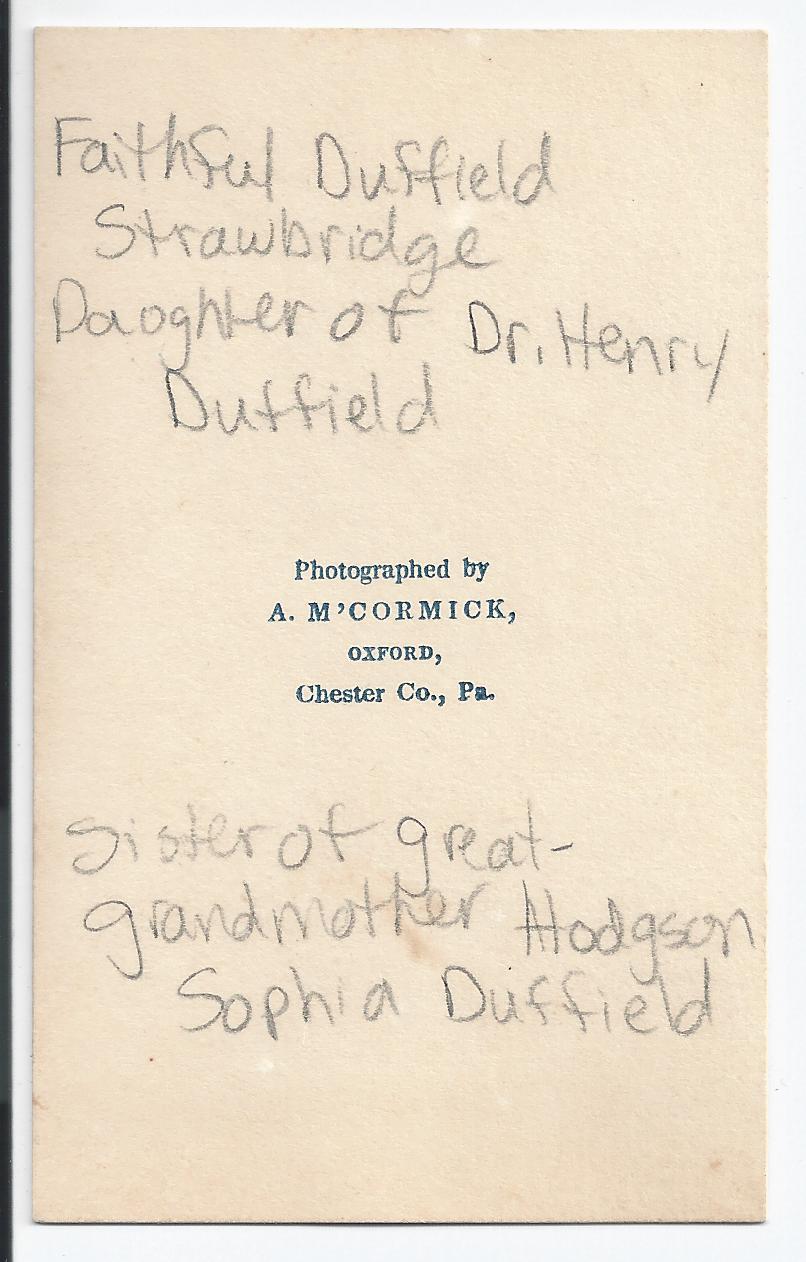 Faithful Duffield
Strawbridge
Daoghter of Dr. Henry
Duffield
Photographed by
A. M'CORMICK,
OXFORD,
Chester Co., Pa.
Sister of great-
grandmother Hodgson
Sophia Duffield